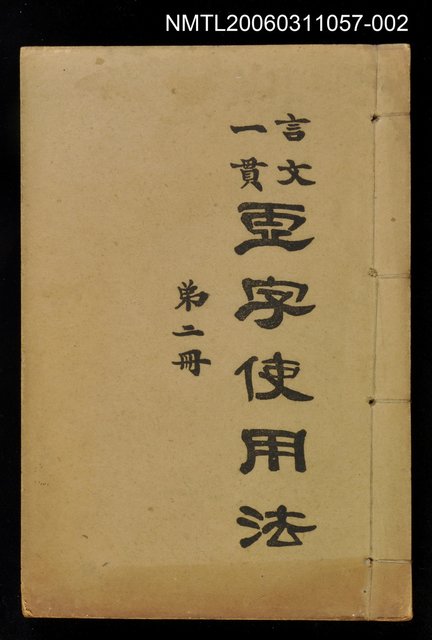 NMTL20060311057-002
言文
一貫
虛字使用法
弟二冊